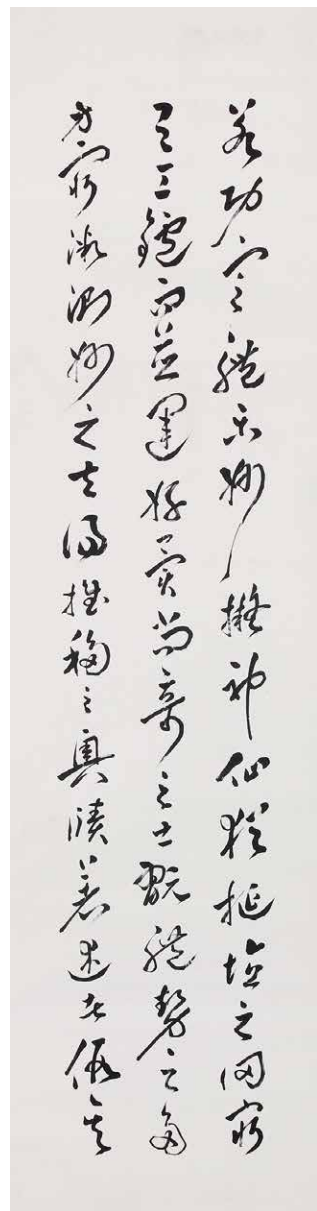 若功定禮樂妙擬神仙猶埏埴之罔窮
與工鑪而並運好異尚奇之士翫體勢之多
方窮微測妙之夫得推移之奧賾著述者假其